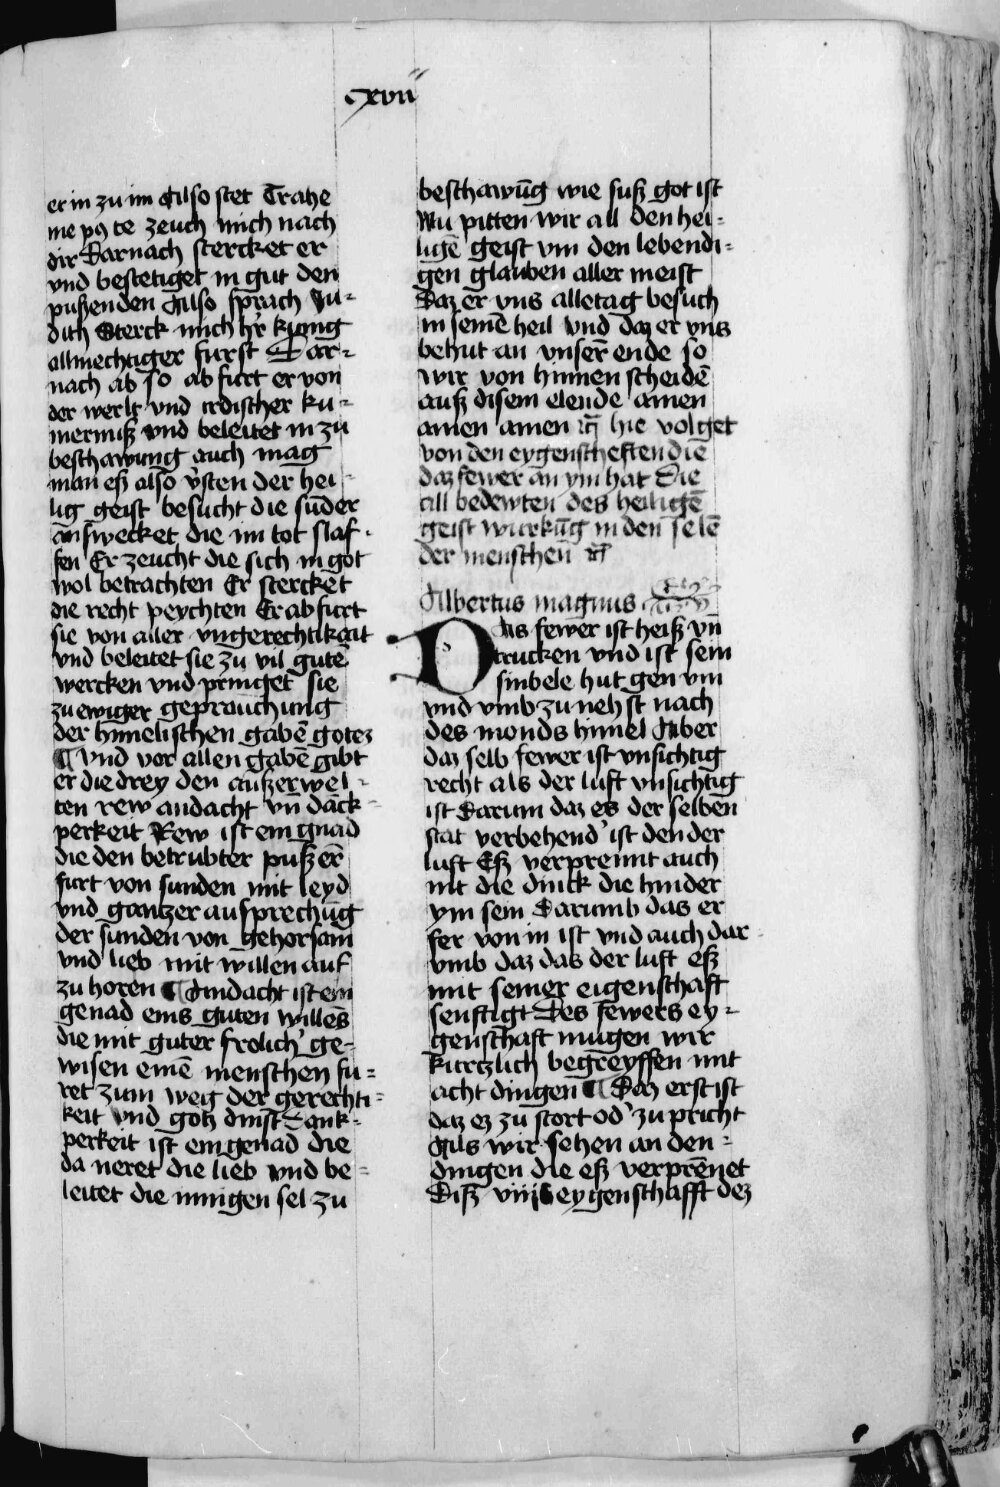 cxvii
er in zu im Also stet Trahe
me po te zeuch mich nach
dir Darnach stercket er
vnd bestetiget in gut den
pußenden Also sprach Ju-
dith Sterck mich h'r kunig
allmechtiger furst Dar-
nach ab so ab furt er von
der werlt vnd irdischer ku-
mermiß vnd beleitet in zu
beschawung auch mag
man eß also v'sten der hei-
lig geist besucht die sūder
aūfwecket die im tot slaf-
fen Er zeucht die sich in got
wol betrachten Er stercket
die recht peychten Er ab furt
sie von aller vngerechtikait
vnd beleitet sie zu vil gutē
wercken vnd prniget sie
zu ewiger geprauchung
der himelischen gabē gotez
¶ Vnd vor allen gabē gibt
er die drey den außerwel-
ten rew andacht vn̄ dāck-
perkeit Rew ist ein gnad
die den betrubter pußer̄
furt von sunden mit leyd
vnd gantzer aufprechūg
der sunden von gehorsam
vnd lieb mit willen auf
zu horen ¶ Andacht ist ein
genad eins guten willēs
die mit guter frolich' ge-
wisen einē menschen fu-
ret zum weg der gerechti-
keit Vnd gotz dinst Dank-
perkeit ist ein genad die
da neret die lieb vnd be-
leitet die innigen sel zu
beschawūg wie suß got ist
Nu pitten wir all den hei-
ligē geist vm den lebendi-
gen glauben aller meist
Daz er vns alletag besuch
in seinē heil vnd daz er vns
behut an vnser̄ ende so
wir von hinnen scheidē
auß disem elende amen
amen amen hie volget
von den eygenscheften die
daz fewer an ym hat Die
all bedewten des heiligē
geist wurkūg in den selē
der menschen
Albertus magnus
Das fewer ist heiß vn̄
trucken vnd ist sein
sinbele hut gen vm
vnd vmb zu nehst nach
des monds himel Aber
daz selb fewer ist vnsichtig
recht als der luft vnsichtig
ist Darum daz es der selben
stat verbehend' ist den der
luft Eß verprennt auch
nit die dinck die hinder
ym sein Darumb das er
fer von in ist vnd auch dar
vmb daz das der luft eß
mit seiner eigenschaft
senftigt Des fewers ey-
genschaft mugen wir
kurtzlich begreyffen mit
acht dingen ¶ Daz erst ist
daz ez zu stort od' zu pricht
Als wir sehen an den-
dingen die eß verprēnet
Diß eygenschafft dez